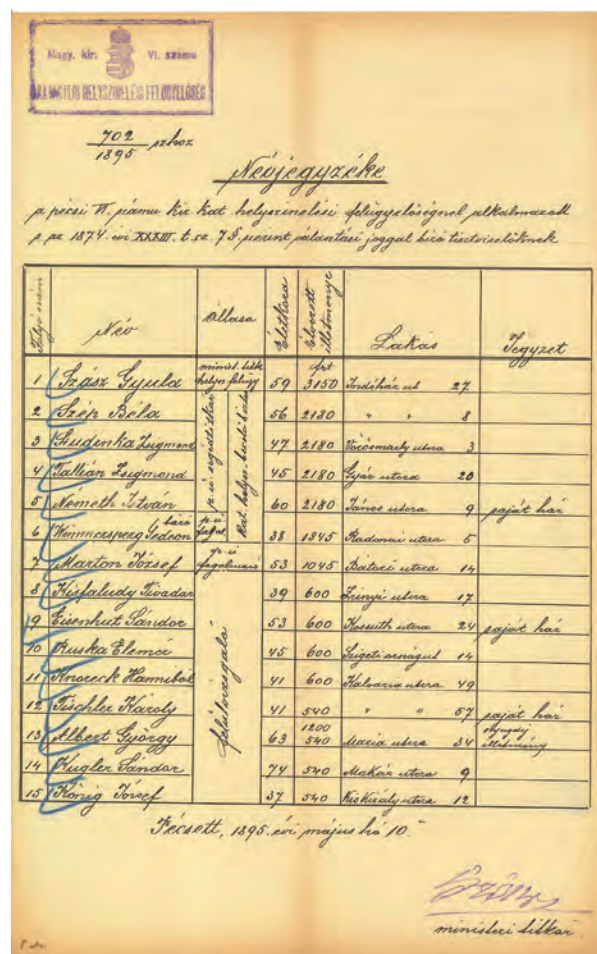 Magy. kir. VI. számu
KATASTERI HELYSZINELÉSI FELÜGYELŐSÉG
702/1895 szhoz
Névjegyzéke
a pécsi VI. számu kir. kat. helyszinelési felügyelőségnél alkalmazott
s az 1874. évi XXXIII. t. cz. 7 §. szerint választási joggal biró tisztviselőknek
Folyó szám Név Állása Életkora Élvezett illetménye Lakás Jegyzet
frt
1 Szász Gyula minist. titk. helysz. felügy 59 3150 Indóház ut 27
2 Szép Béla p. ü. segédtitkár kat. helysz. 56 2180 " " 8
3 Studenka Zsigmond 47 2180 Vörösmarty utcza 3
4 Tallián Zsigmond 45 2180 Gyár utcza 20
5 Németh István 60 2180 János utcza 9 saját ház
6 báró Wimmersperg Gedeon p. ü. 38 1345 Radonai utcza 5
7 Marton József p. ü. fogalmazó 53 1045 Bátori utcza 14
8 Kisfaludy Tivadar felülvizsgáló 39 600 Zrinyi utcza 17
9 Eisenhut Sándor 53 600 Kossuth utcza 24 saját ház
10 Ruska Elemér 45 600 Szigeti országut 14
11 Knoreck Hannibál 41 600 Kalvaria utcza 49
12 Tischler Károly 41 540 " " 57 saját ház
13 Albert György 63 1200 540 Maria utcza 34 nyugdij illetmény
14 Kugler Sándor 74 540 Makár utcza 9
15 König József 37 540 Kis Király utcza 12
Pécsett, 1895. évi május hó 10.
ministeri titkár.